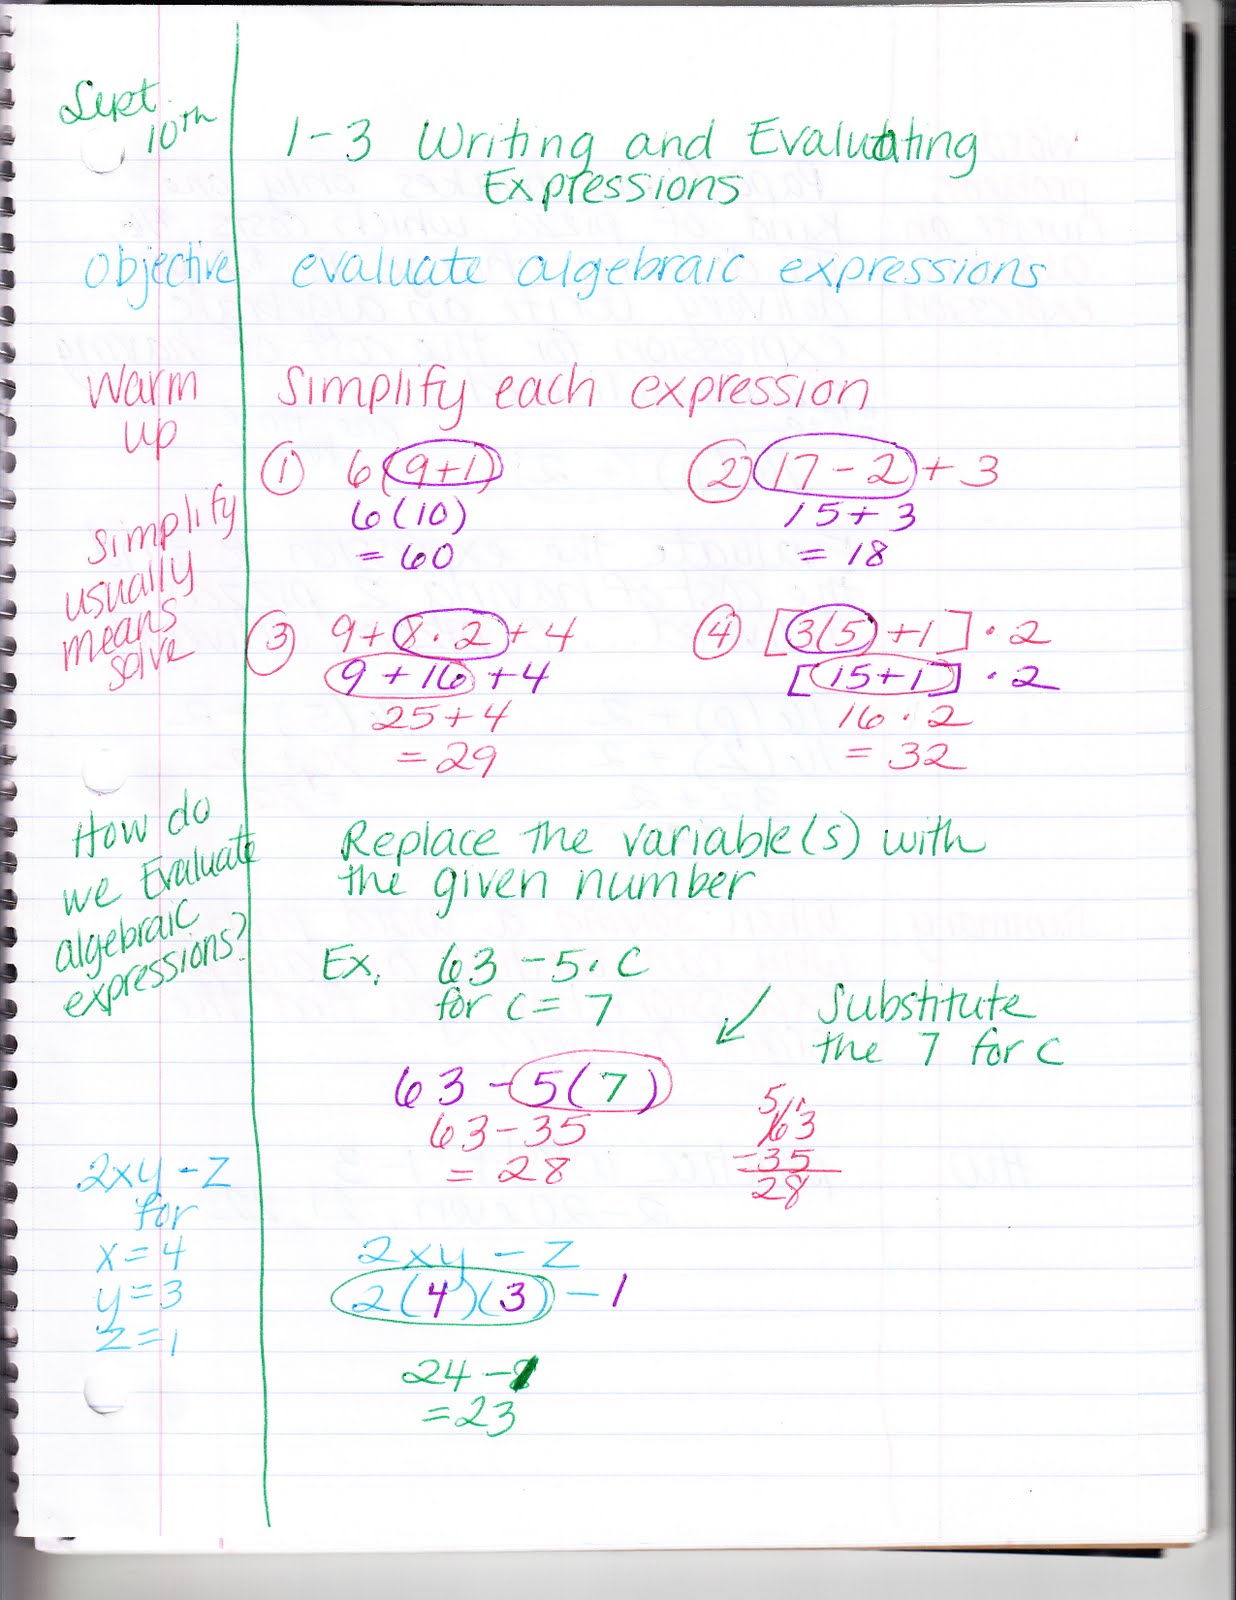 Sept.
10th
1-3 Writing and Evaluating
Expressions
Objective evaluate algebraic expressions
Warm
up
Simplify each expression
① 6(9+1)
6(10)
= 60
② (17-2)+3
15+3
= 18
simplify
usually
means
solve
③ 9+8·2+4
9+16+4
25+4
= 29
④ [3(5)+1]·2
[15+1]·2
16·2
= 32
How do
we Evaluate
algebraic
expressions?
Replace the variable(s) with
the given number
Ex. 63-5·C
for C=7
Substitute
the 7 for C
63-5(7)
63-35
= 28
5 1
63
-35
28
2xy-z
for
x=4
y=3
z=1
2xy-z
2(4)(3)-1
24-1
=23